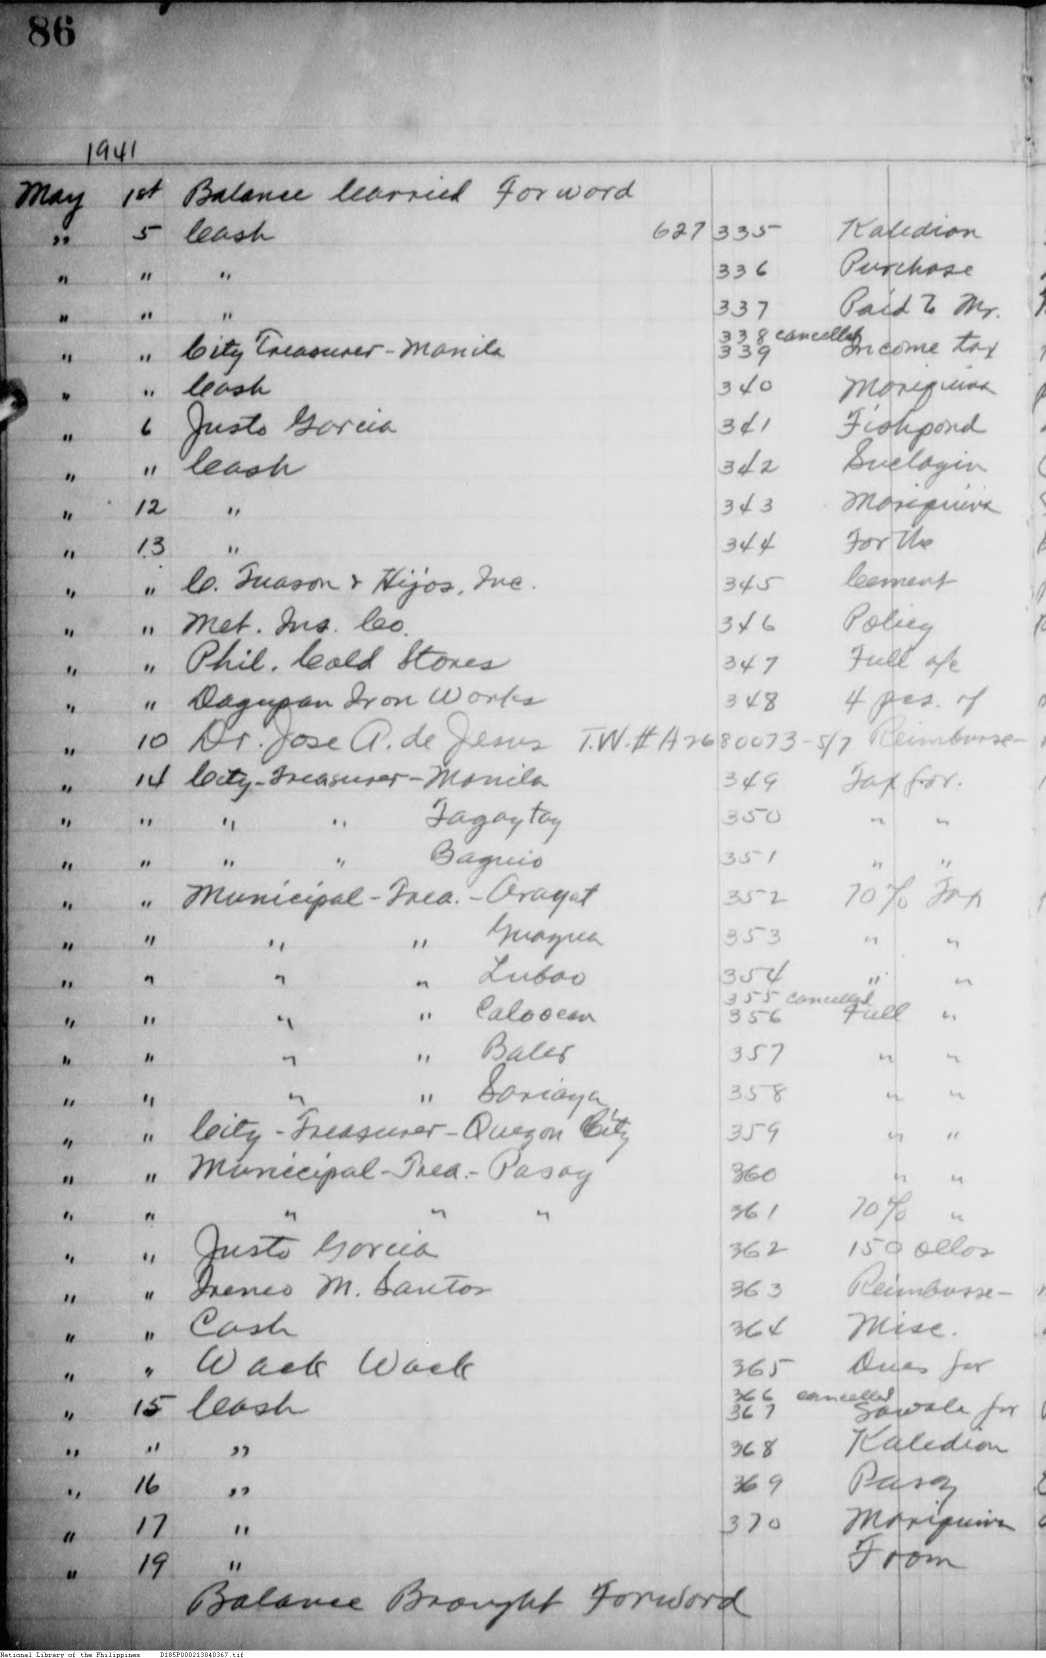 86
1941
May 1st Balance Carried Forword
" 5 Cash 627 335 Kaledian
" " " 336 Purchase
" " " 337 Paid to Mr.
338 cancelled
" " City Treasurer - Manila 339 Income tax
" " Cash 340 Mariquina
" 6 Justo Garcia 341 Fishpond
" " Cash 342
" 12 " 343 Mariquina
" 13 " 344 For the
" " C. Tuason & Hijos, Inc. 345 Cement
" " Met. Ins. Co. 346 Policy
" " Phil. Cold Stores 347 Full a/c
" " Dagupan Iron Works 348 4 pcs. of
" 10 Dr. Jose A. de Jesus T.W.# A2680073-5/7 Reimburse-
" 14 City-Treasurer-Manila 349 Tax for.
" " " " Tagaytay 350 " "
" " " " Baguio 351 " "
" " Municipal-Trea.-Arayat 352 70% Tax
" " " " Guagua 353 " "
" " " " Lubao 354 " "
355 cancelled
" " " " Caloocan 356 Full "
" " " " Baler 357 " "
" " " " Sariaya 358 " "
" " City-Treasurer-Quezon City 359 " "
" " Municipal-Trea.-Pasay 360 " "
" " " " " 361 70% "
" " Justo Garcia 362 150 ollas
" " Ireneo M. Santos 363 Reimburse-
" " Cash 364 Misc.
" " Wack Wack 365 Dues for
366 cancelled
" 15 Cash 367 Sawale for
" " " 368 Kaledian
" 16 " 369 Pasay
" 17 " 370 Mariquina
" 19 " From
Balance Brought Forword
National Library of the Philippines D185P000213040367.tif